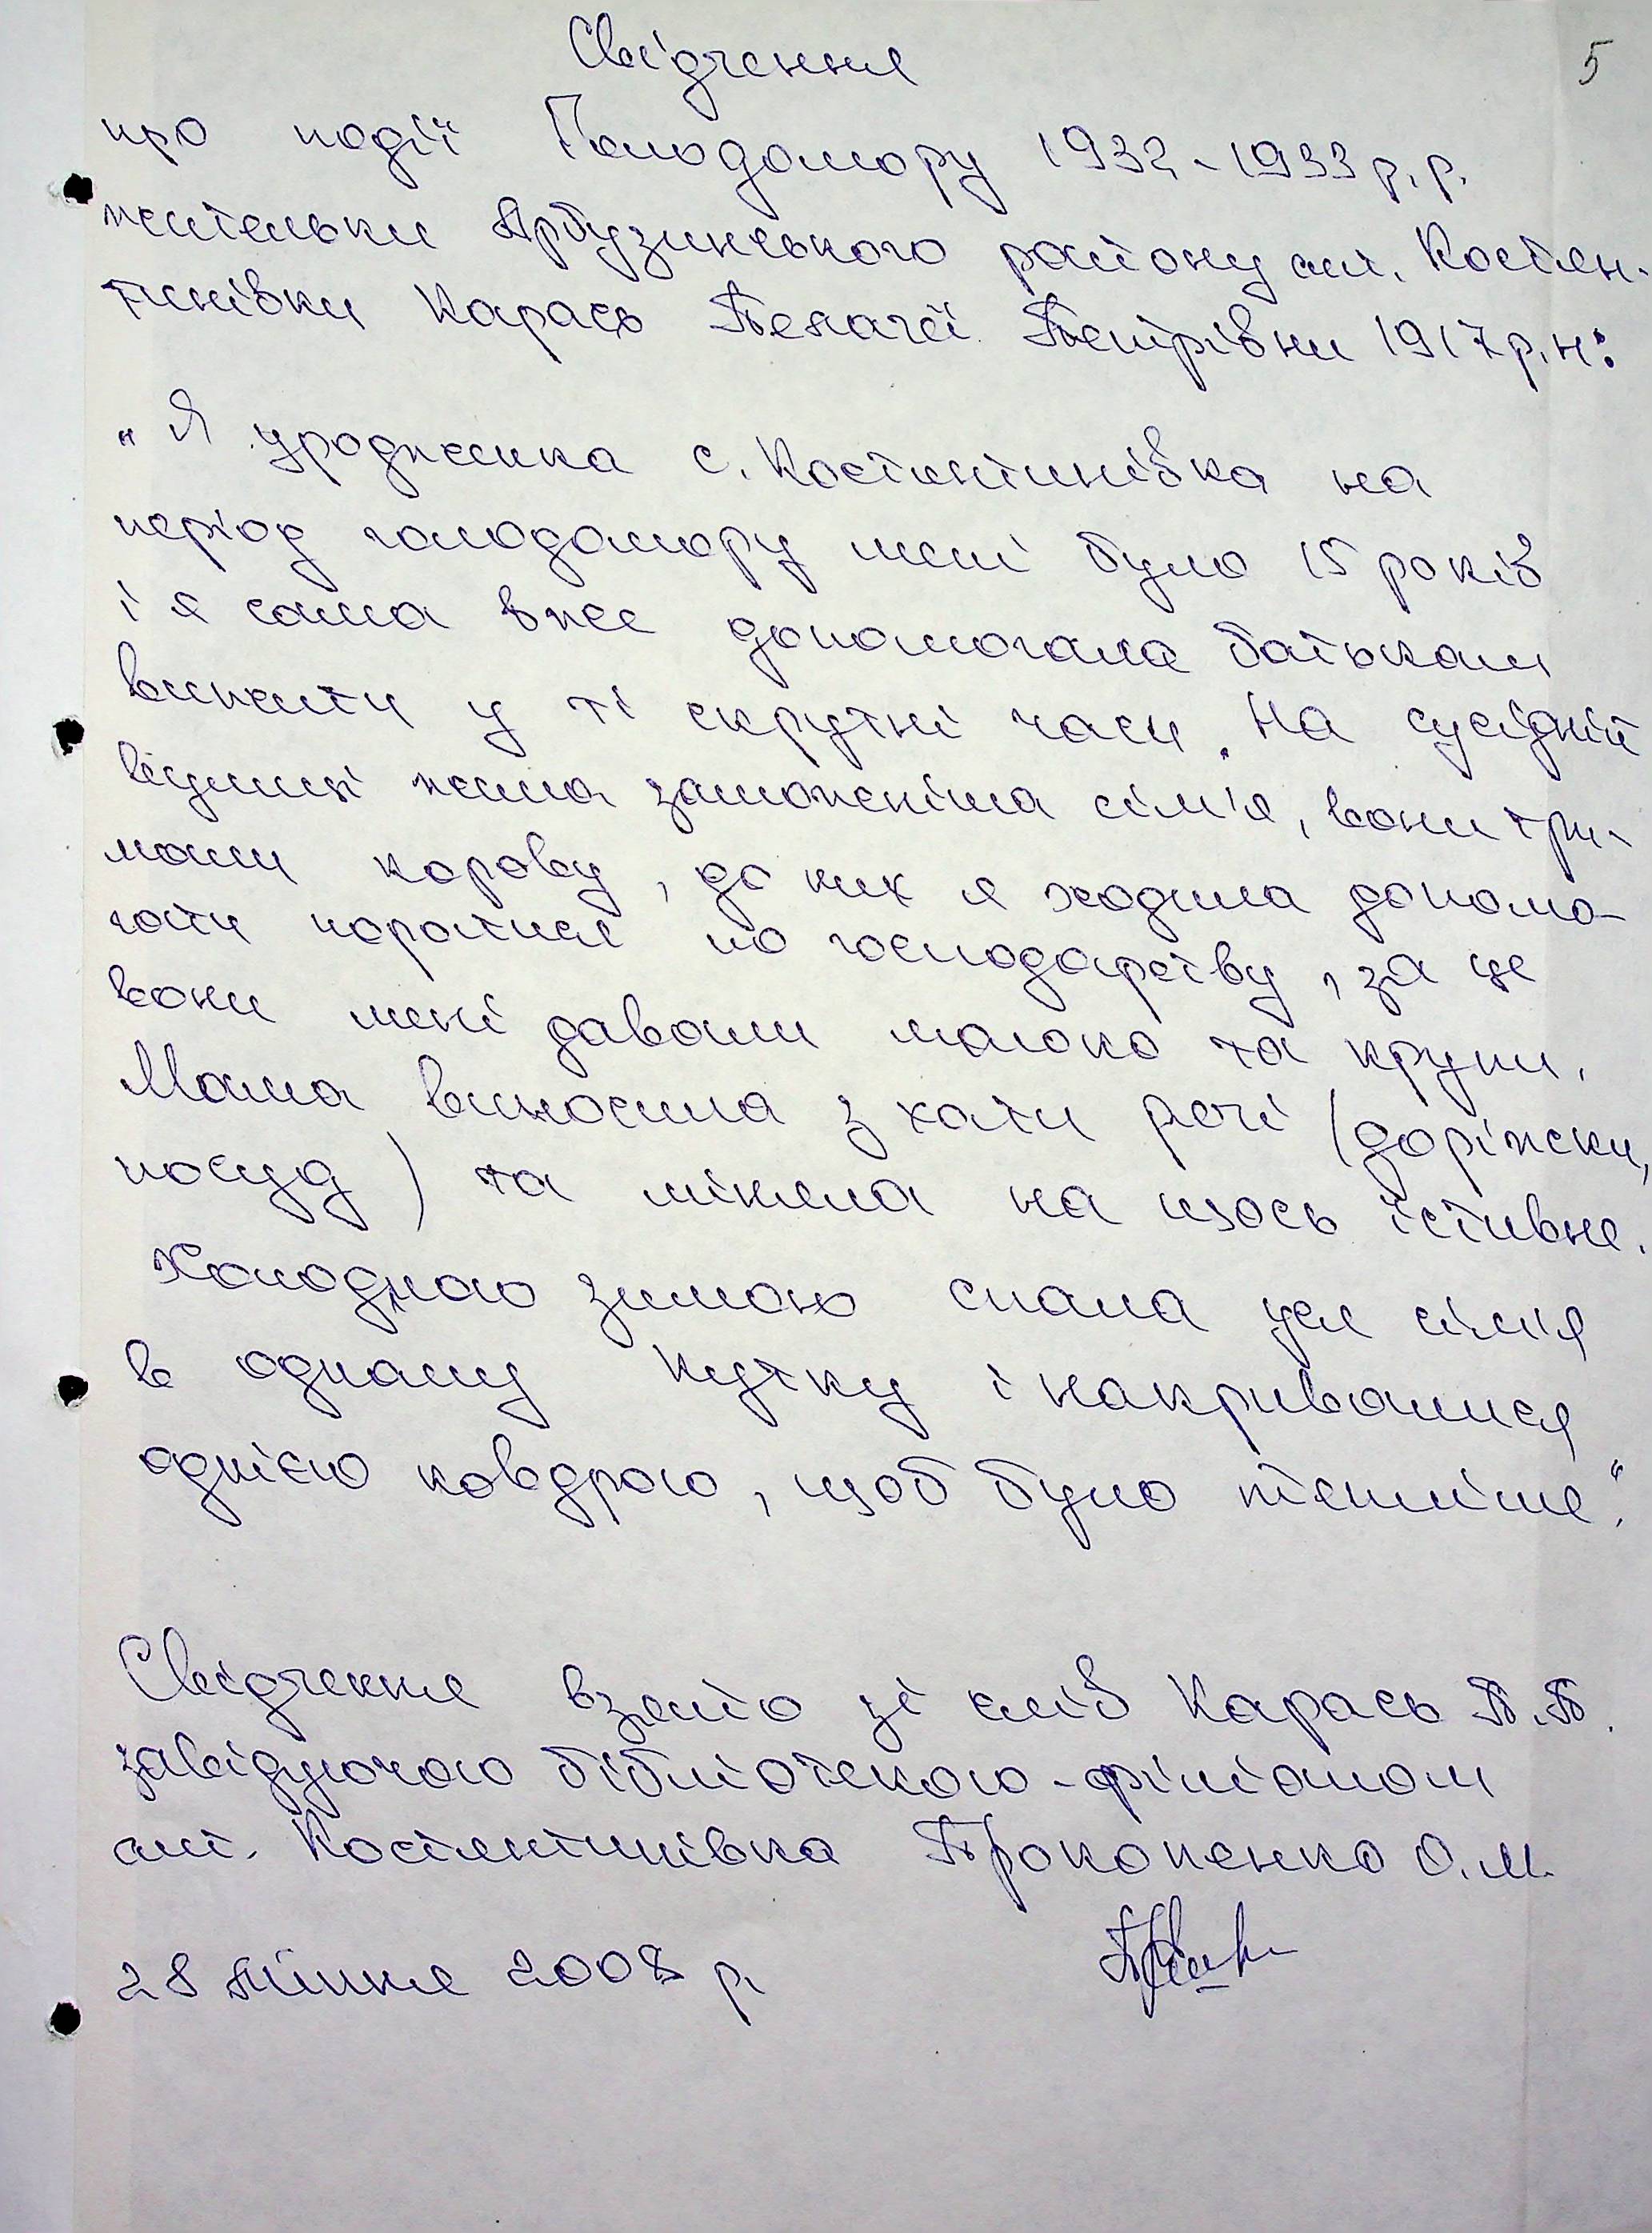 5
Свідчення
про події Голодомору 1932-1933 р.р.
жительки Арбузинського району смт. Костян-
тинівки Карась Пелагєї Петрівни 1917 р.н:
„Я уродженка с. Костянтинівка на
період голодомору мені було 15 років
і я сама вже допомогала батькам
вижити у ті скрутні часи. На сусідній
вулиці жила заможніша сім'я, вони три-
мали корову, до них я ходила допома-
гати поратися по господарству, за це
вони мені давали молоко та крупи.
Мама виносила з хати речі (доріжки,
посуд) та міняла на щось їстивне.
Холодною зимою спала уся сім'я
в одному кутку і накривалися
однією ковдрою, щоб було тепліше“.
Свідчення взято зі слів Карась П.П.
завідуючою бібліотекою-філіалом
смт. Костянтинівка Прокопенко О.М.
28 липня 2008 р.